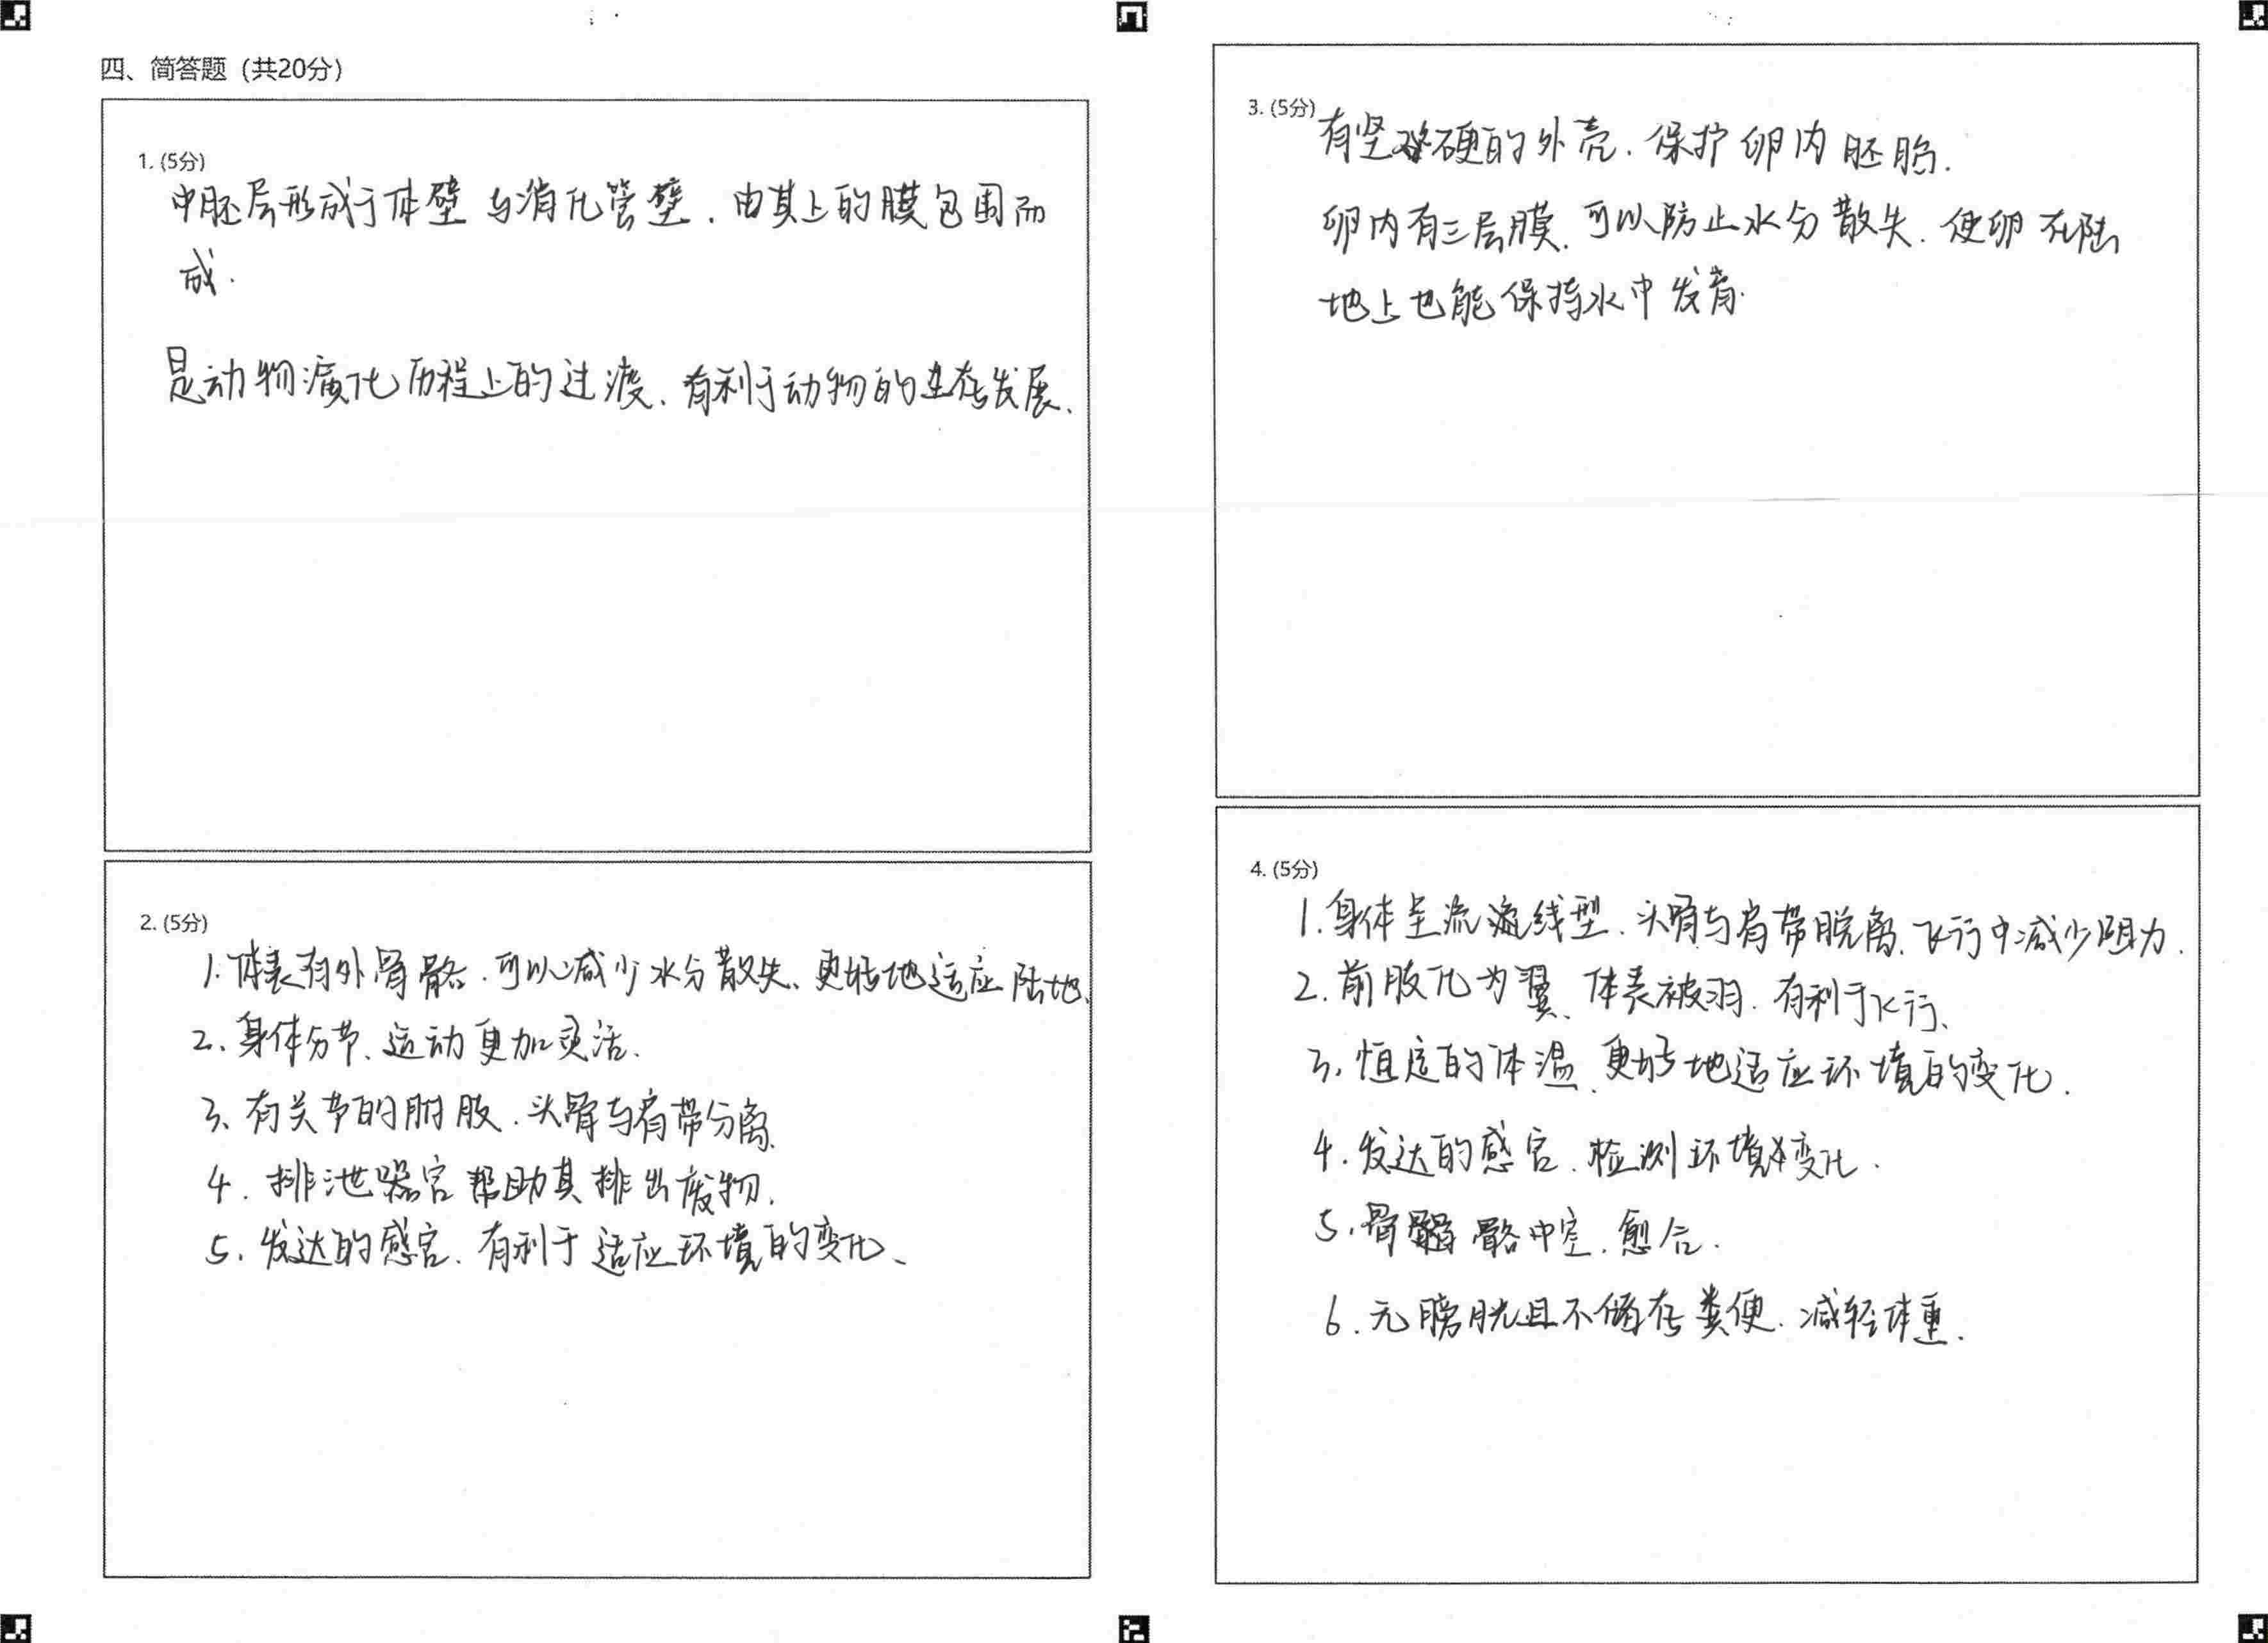 四、简答题（共20分）
1. (5分)
中胚层形成于体壁与消化管壁，由其上的膜包围而
成.
是动物演化历程上的过渡、有利于动物的生存发展、
2. (5分)
1. 体表有外骨骼.可以减少水分散失、更好地适应陆地、
2、身体分节、运动更加灵活.
3、有关节的附肢.头骨与肩带分离.
4. 排泄器官帮助其排出废物.
5. 发达的感官.有利于适应环境的变化、
3. (5分)
有坚硬的外壳.保护卵内胚胎.
卵内有三层膜.可以防止水分散失.使卵在陆
地上也能保持水中发育.
4. (5分)
1.身体呈流线型.头骨与肩带脱离.飞行中减少阻力.
2.前肢化为翼、体表被羽.有利于飞行、
3.恒定的体温.更好地适应环境的变化.
4.发达的感官.检测环境变化.
5.骨骼中空.愈合.
6.无膀胱且不储存粪便.减轻体重.